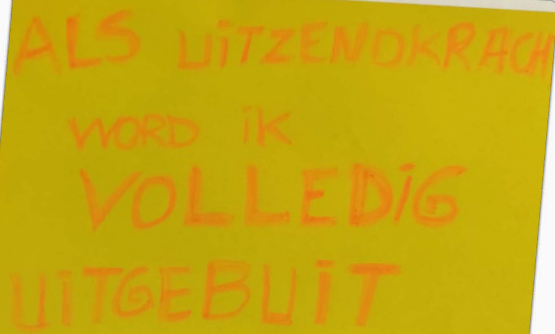 ALS UiTZENDKRACH
WORD iK
VOLLEDiG
UiTGEBUiT